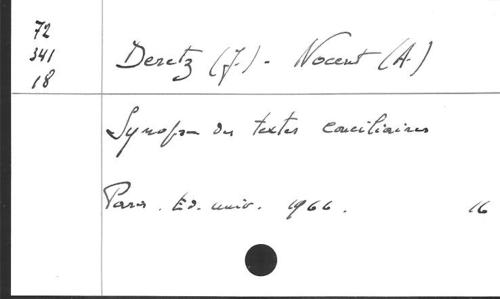 72
341
18
Deretz (J.) - Nocent (A.)
Synopse des textes conciliaires
Paris. Ed. univ. 1966. 16